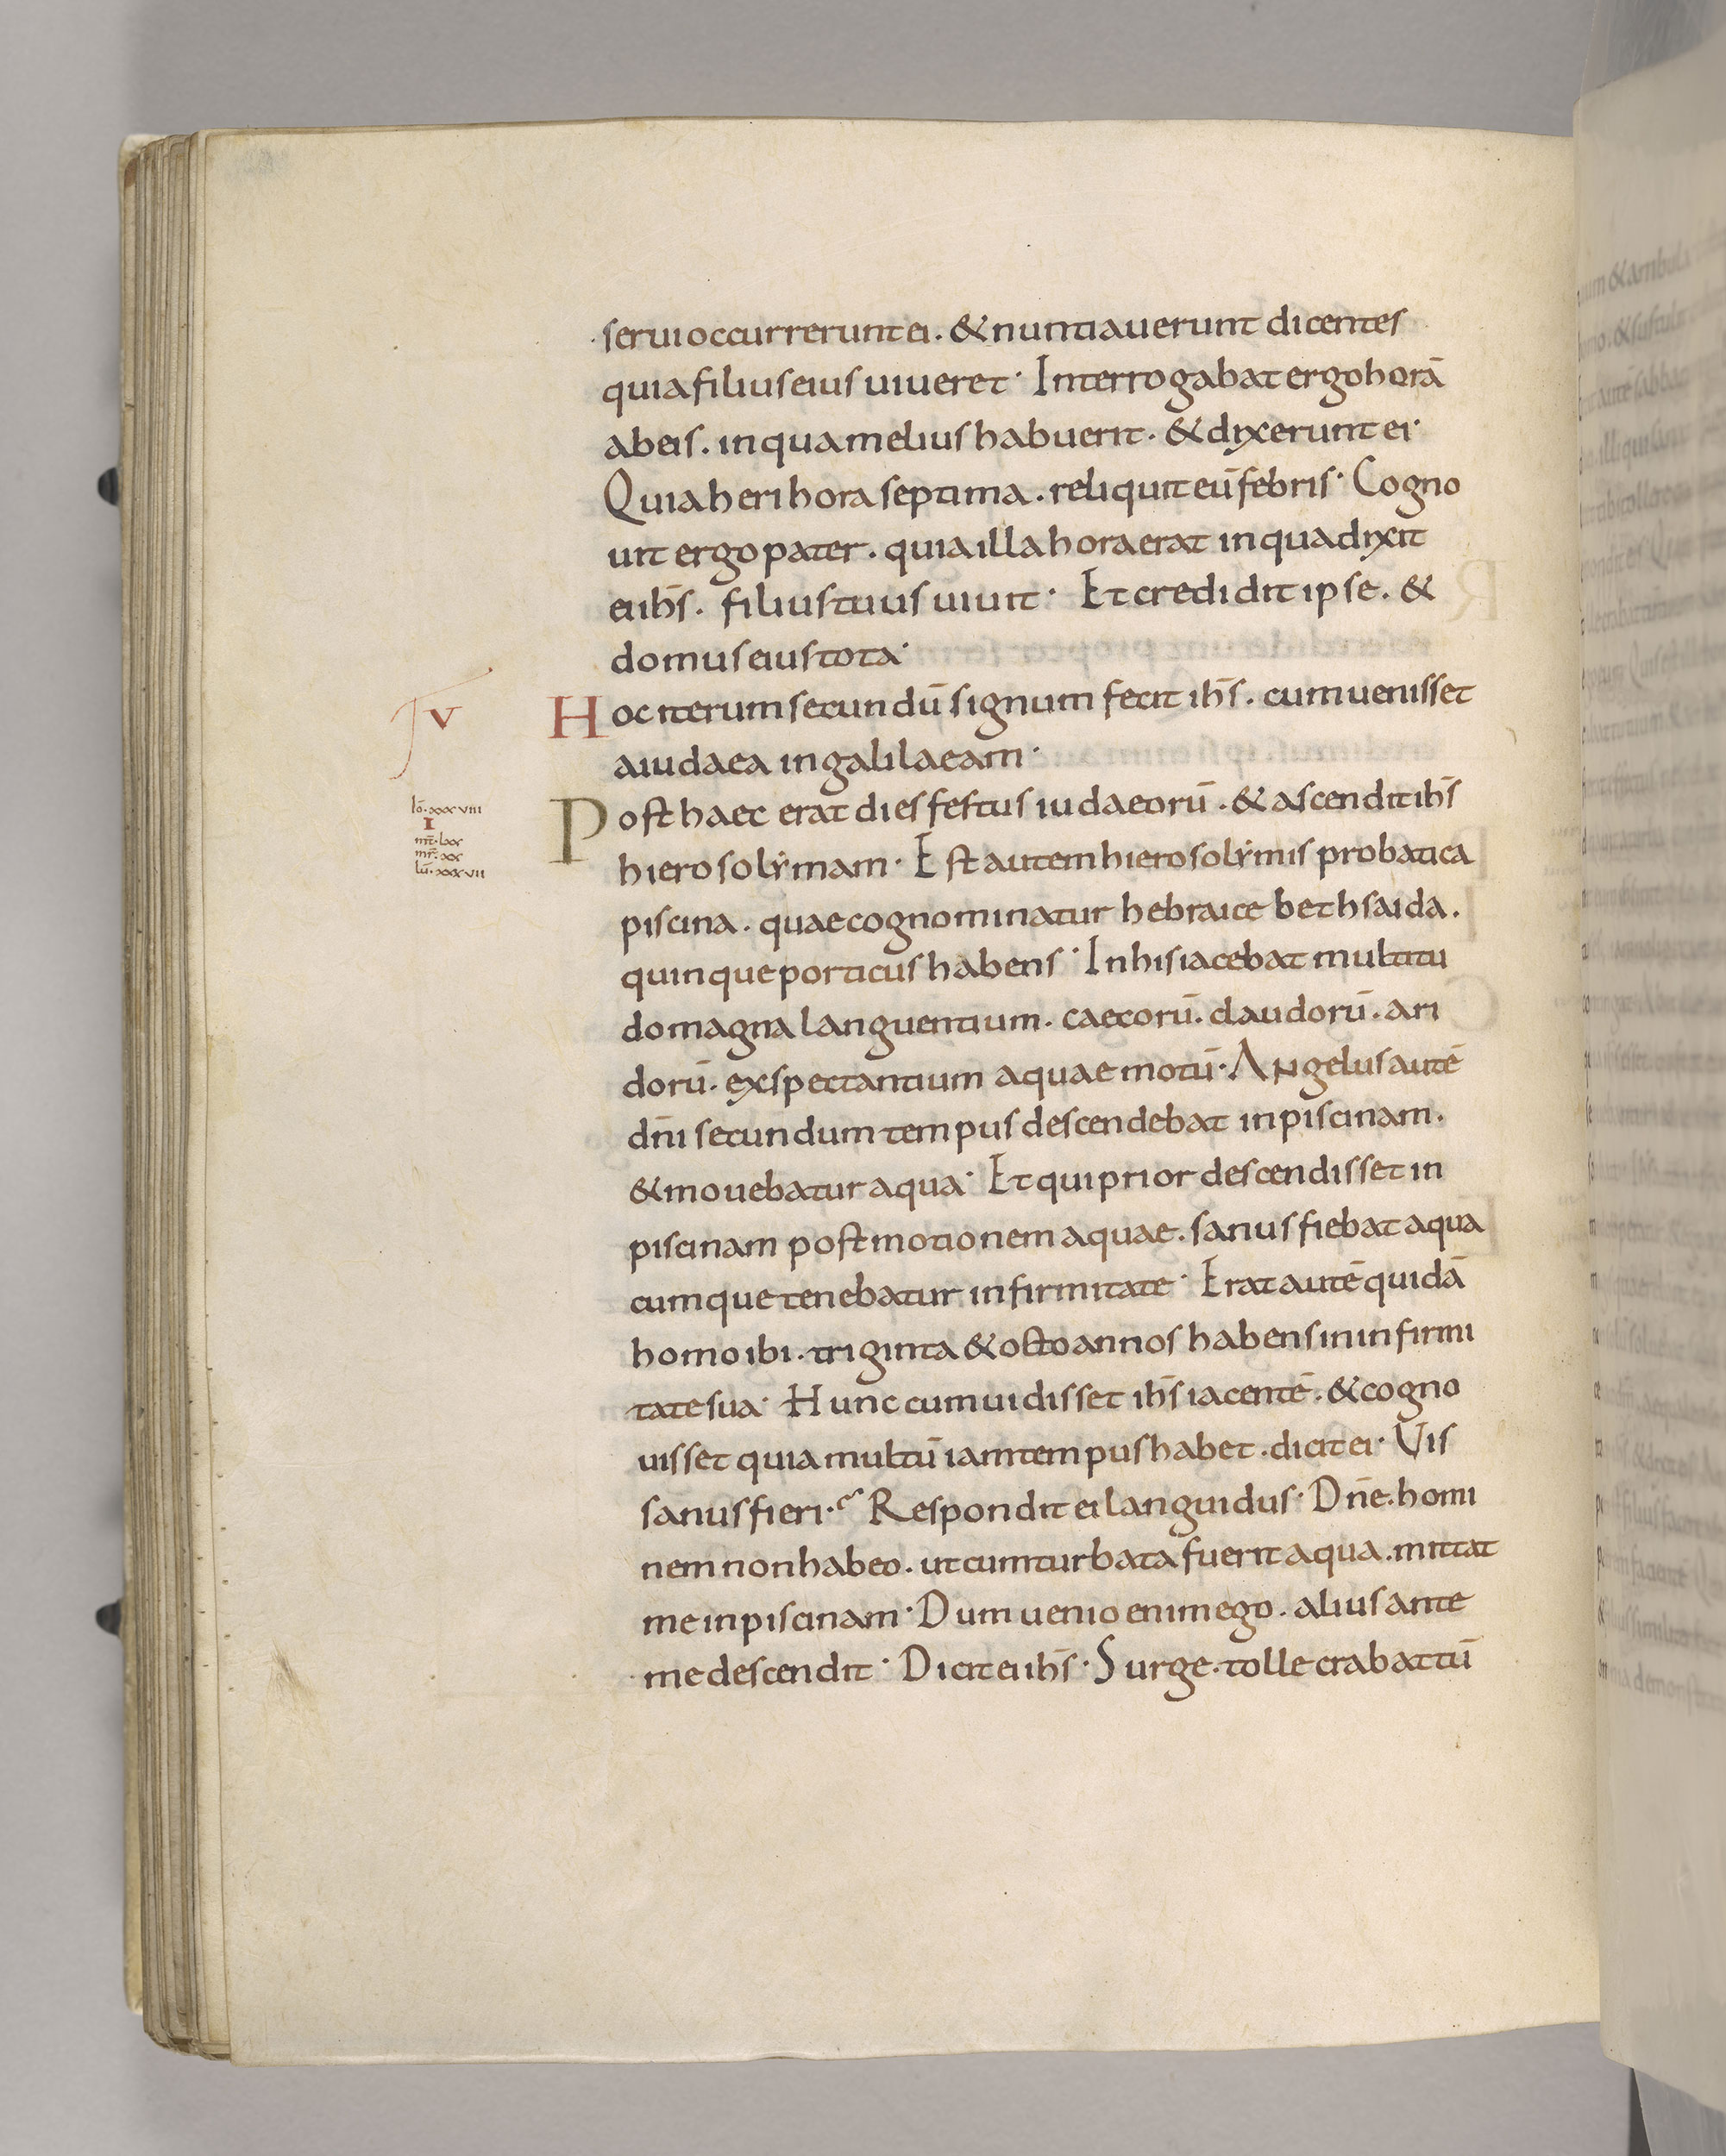 serui occurrerunt ei. & nuntiauerunt dicentes
quia filius eius uiueret· Interrogabat ergo horā
ab eis. in qua melius habuerit· & dixerunt ei·
Quia heri hora septima. reliquit eū febris· Cogno
uit ergo pater. quia illa hora erat in qua dixit
ei ihs̄. filius tuus uiuit· Et credidit ipse. &
domus eius tota·
V
Hoc iterum secundū signum fecit ihs̄. cum uenisset
a iudaea in galilaeam·
iō· xxxviii
I
mt̄· lxx
mr̄· xx
lū· xxxvii
Post haec erat dies festus iudaeorū. & ascendit ihs̄
hierosolẏmam· Est autem hierosolẏmis probatica
piscina. quae cognominatur hebraice bethsaida.
quinque porticus habens· In his iacebat multitu
do magna languentium. caecorū. claudorū. ari
dorū. exspectantium aquae motū· Angelus autē
dn̄i secundum tempus descendebat in piscinam.
& mouebatur aqua· Et qui prior descendisset in
piscinam post motionem aquae. sanus fiebat a qua
cumque tenebatur infirmitate· Erat autē quidā
homo ibi. triginta & octo annos habens in infirmi
tate sua· Hunc cum uidisset ihs̄ iacentē. & cogno
uisset quia multū iam tempus habet. dicit ei· Vis
sanus fieri? Respondit ei languidus· Dn̄e. homi
nem non habeo. ut cum turbata fuerit aqua. mittat
me in piscinam· Dum uenio enim ego. alius ante
me descendit· Dicit ei ihs̄· Surge. tolle crabattū